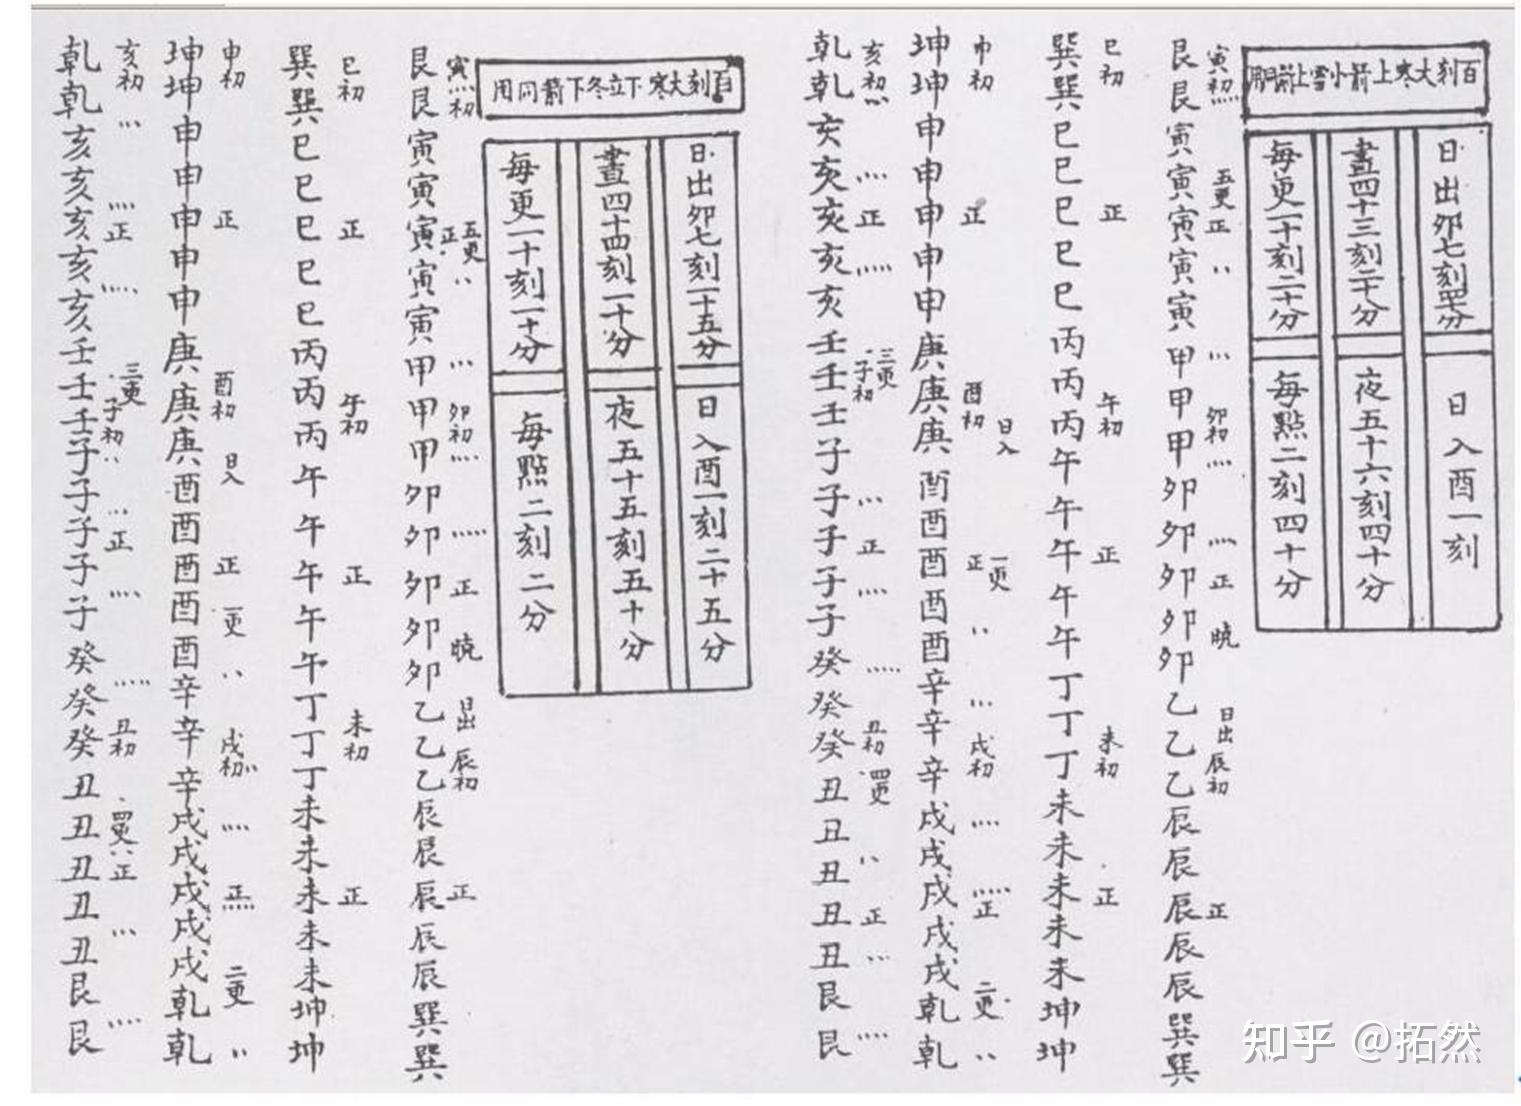 百刻大寒上箭小雪上箭同用
日出卯七刻四十分
日入酉一刻
晝四十三刻二十分
夜五十六刻四十分
每更一十刻二十分
每點二刻四十分
寅初 五更 正 卯初 正 曉 日出 辰初 正
艮艮寅寅寅寅寅甲甲甲卯卯卯卯卯乙乙乙辰辰辰辰辰巽巽
巳初 正 午初 正 未初 正
巽巽巳巳巳巳巳丙丙丙午午午午午丁丁丁未未未未未坤坤
申初 正 酉初 日入 一更 正 戌初 正 二更
坤坤申申申申申庚庚庚酉酉酉酉酉辛辛辛戌戌戌戌戌乾乾
亥初 正 三更 子初 正 丑初 四更 正
乾乾亥亥亥亥亥壬壬壬子子子子子癸癸癸丑丑丑丑丑艮艮
百刻大寒下立冬下箭同用
日出卯七刻一十五分
日入酉一刻二十五分
晝四十四刻一十分
夜五十五刻五十分
每更一十刻一十分
每點二刻二分
寅初 五更 正 卯初 正 曉 日出 辰初 正
艮艮寅寅寅寅寅甲甲甲卯卯卯卯卯乙乙乙辰辰辰辰辰巽巽
巳初 正 午初 正 未初 正
巽巽巳巳巳巳巳丙丙丙午午午午午丁丁丁未未未未未坤坤
申初 正 酉初 日入 正 一更 戌初 正 二更
坤坤申申申申申庚庚庚酉酉酉酉酉辛辛辛戌戌戌戌戌乾乾
亥初 正 三更 子初 正 丑初 四更 正
乾乾亥亥亥亥亥壬壬壬子子子子子癸癸癸丑丑丑丑丑艮艮
知乎 @拓然